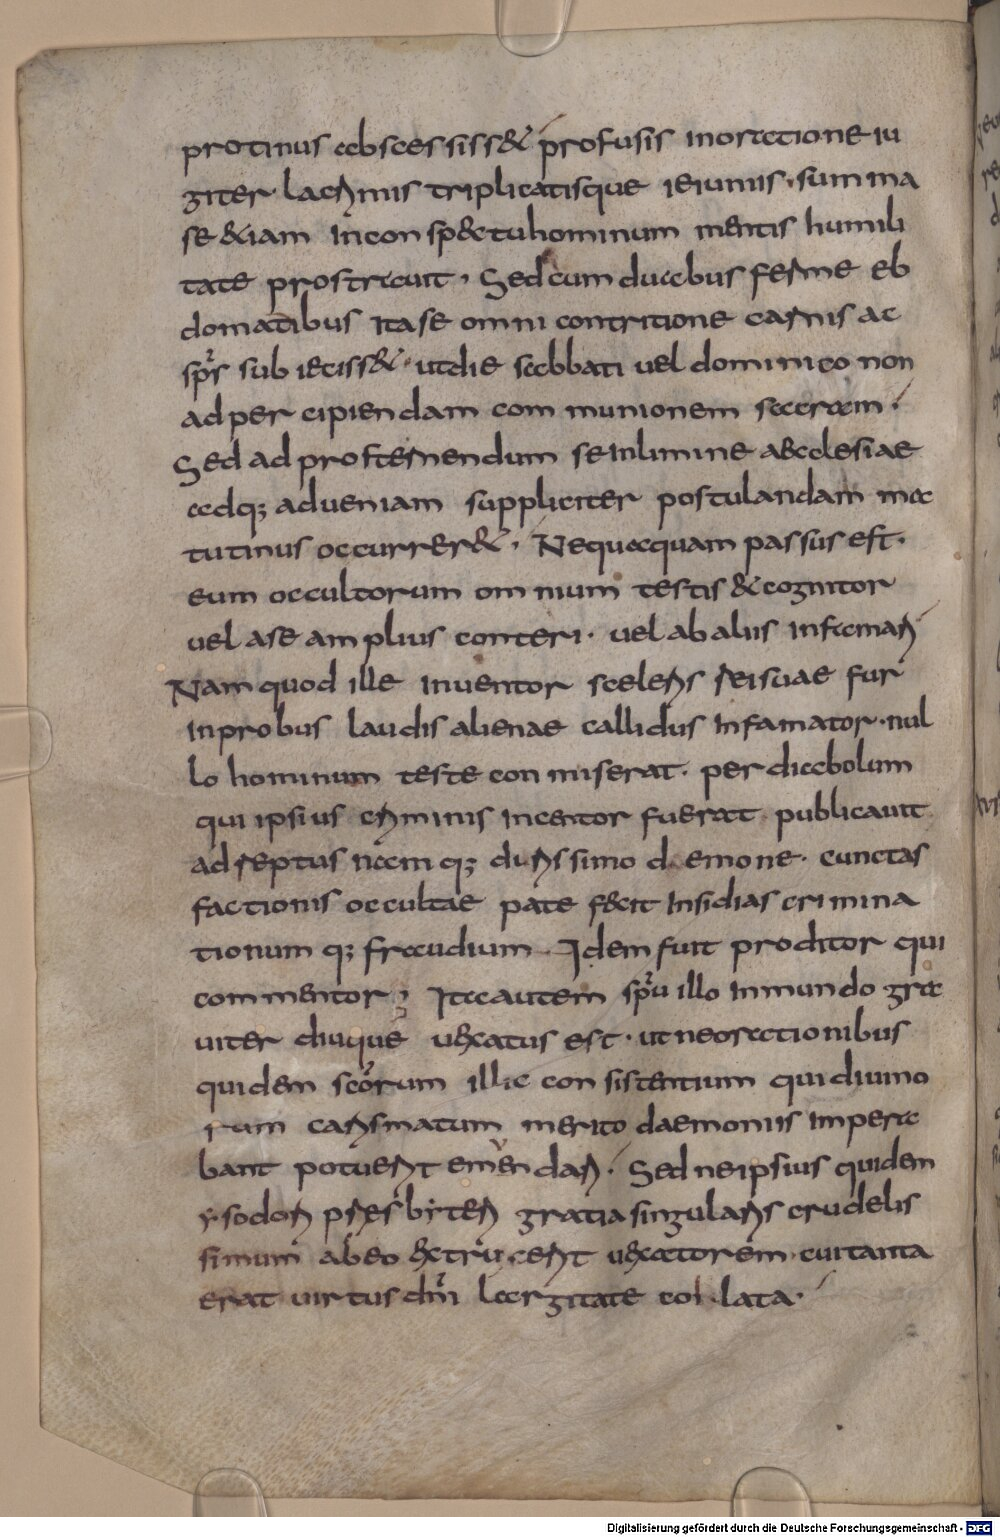 protinus abscessiss& profusis inoratione iu
giter lacrimis triplicatisque ieiuniis · summa
se &iam inconsp&tu hominum mentis humili
tate prostrauit · Sed cum duabus ferme eb
domatibus ita se omni contritione carnis ac
sp̄s sub ieciss& · ut die sabbati uel dominico non
ad percipiendam communionem sacram ·
Sed ad prosternendum se inlimine aecclesiae
adq; adueniam suppliciter postulandam ma
tutinus occurrer& · Nequaquam passus est ·
eum occultorum omnium testis & cognitor
uel ase amplius conteri · uel ab aliis infamari
Nam quod ille inuentor sceleris rei suae fur
inprobus laudis alienae callidus infamator · nul
lo hominum teste conmiserat · per diabolum
qui ipsius criminis incentor fuerat publicauit
adreptus namq; dirissimo demone · cunctas
factionis occultae patef&cit insidias crimina
tionumq; fraudium · Idem fuit proditor qui
commentor ; Ita autem sp̄u illo inmundo gra
uiter diuque uexatus est · ut ne orationibus
quidem scōrum illic consistentium qui diuino
rum carismatum merito daemoniis impera
bant potuerit emendari · Sed ne ipsius quidem
ysodori presbyteri gratia singularis crudelis
simum ab eo
erat uirtus dn̄i largitate conlata ·
Digitalisierung gefördert durch die Deutsche Forschungsgemeinschaft - DFG